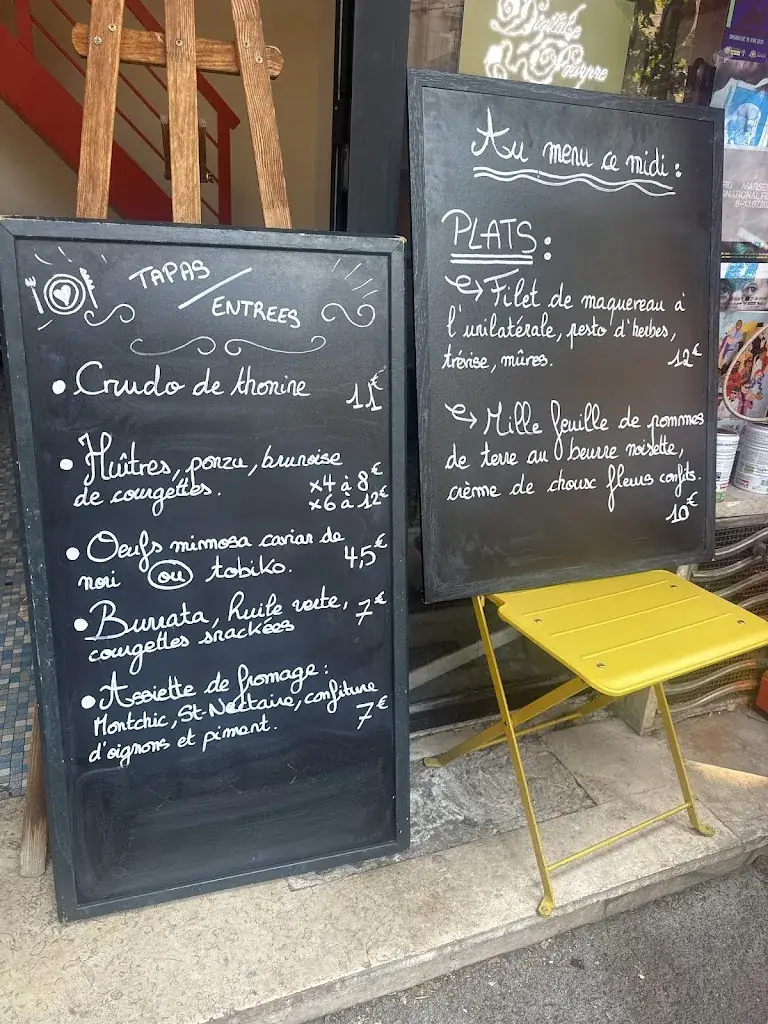 TAPAS / ENTREES
• Crudo de thonine 11€
• Huîtres, ponzu, brunoise
de courgettes. x4 à 8€
x6 à 12€
• Oeufs mimosa caviar de
nori ou tobiko. 4,5€
• Burrata, huile verte, 7€
courgettes snackées
• Assiette de fromage :
Montchic, St-Nectaire, confiture
d'oignons et piment. 7€
Au menu ce midi :
PLATS :
Filet de maquereau à
l'unilatérale, pesto d'herbes,
trévise, mûres. 12€
Mille feuille de pommes
de terre au beurre noisette,
crème de choux fleurs confits.
10€
Pourpre